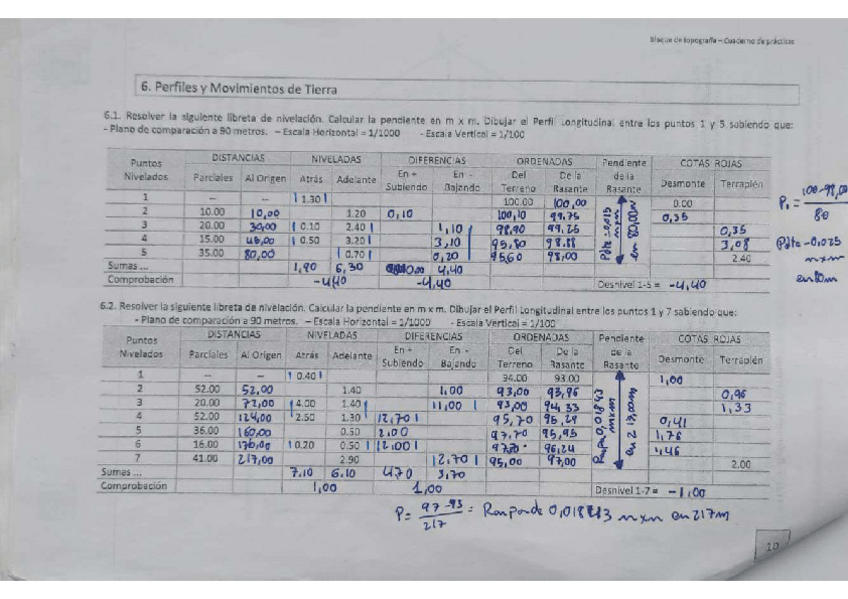 Bloque de topografía – Cuaderno de prácticas
6. Perfiles y Movimientos de Tierra
6.1. Resolver la siguiente libreta de nivelación. Calcular la pendiente en m x m. Dibujar el Perfil Longitudinal entre los puntos 1 y 5 sabiendo que:
- Plano de comparación a 90 metros. – Escala Horizontal = 1/1000 - Escala Vertical = 1/100
Puntos Nivelados DISTANCIAS NIVELADAS DIFERENCIAS ORDENADAS Pendiente de la Rasante COTAS ROJAS
Parciales Al Origen Atrás Adelante En + Subiendo En - Bajando Del Terreno De la Rasante Desmonte Terraplén
1 -- -- 1.30 100.00 100,00 0.00
2 10.00 10,00 1.20 0,10 100,10 99,75 0,35
3 20.00 30,00 0.10 2.40 1,10 99,25 0,35
4 15.00 45,00 0.50 3.20 3,10 95,80 98.88 3,08
5 35.00 80,00 0.70 0,20 95,60 98,00 2.40
Pdte -0,025 mxm en 80,00m
Sumas ... 1,90 6,30 4,40
Comprobación -4,40 -4,40 Desnivel 1-5 = -4,40
P₁ = 100-98,00
80
Pdte -0,025
mxm
en 80m
6.2. Resolver la siguiente libreta de nivelación. Calcular la pendiente en m x m. Dibujar el Perfil Longitudinal entre los puntos 1 y 7 sabiendo que:
- Plano de comparación a 90 metros. – Escala Horizontal = 1/1000 - Escala Vertical = 1/100
Puntos Nivelados DISTANCIAS NIVELADAS DIFERENCIAS ORDENADAS Pendiente de la Rasante COTAS ROJAS
Parciales Al Origen Atrás Adelante En + Subiendo En - Bajando Del Terreno De la Rasante Desmonte Terraplén
1 -- -- 0.40 94.00 93.00 1,00
2 52.00 52,00 1.40 1,00 93,00 93,96 0,96
3 20.00 72,00 4.00 1.40 1,00 93,00 94,33 1,33
4 52.00 124,00 2.50 1.30 2,70 95,70 95,29 0,41
5 36.00 160,00 0.50 2,00 97,70 95,95 1,76
6 16.00 0.20 0.50 96,24 1,46
7 41.00 217,00 2.90 2,70 95,00 97,00 2.00
mxm en 217,00m
Sumas ... 7.10 6.10 4,70 3,70
Comprobación 1,00 1,00 Desnivel 1-7 = -1,00
P = 97-93 = Rampa de mxm en 217m
217
10